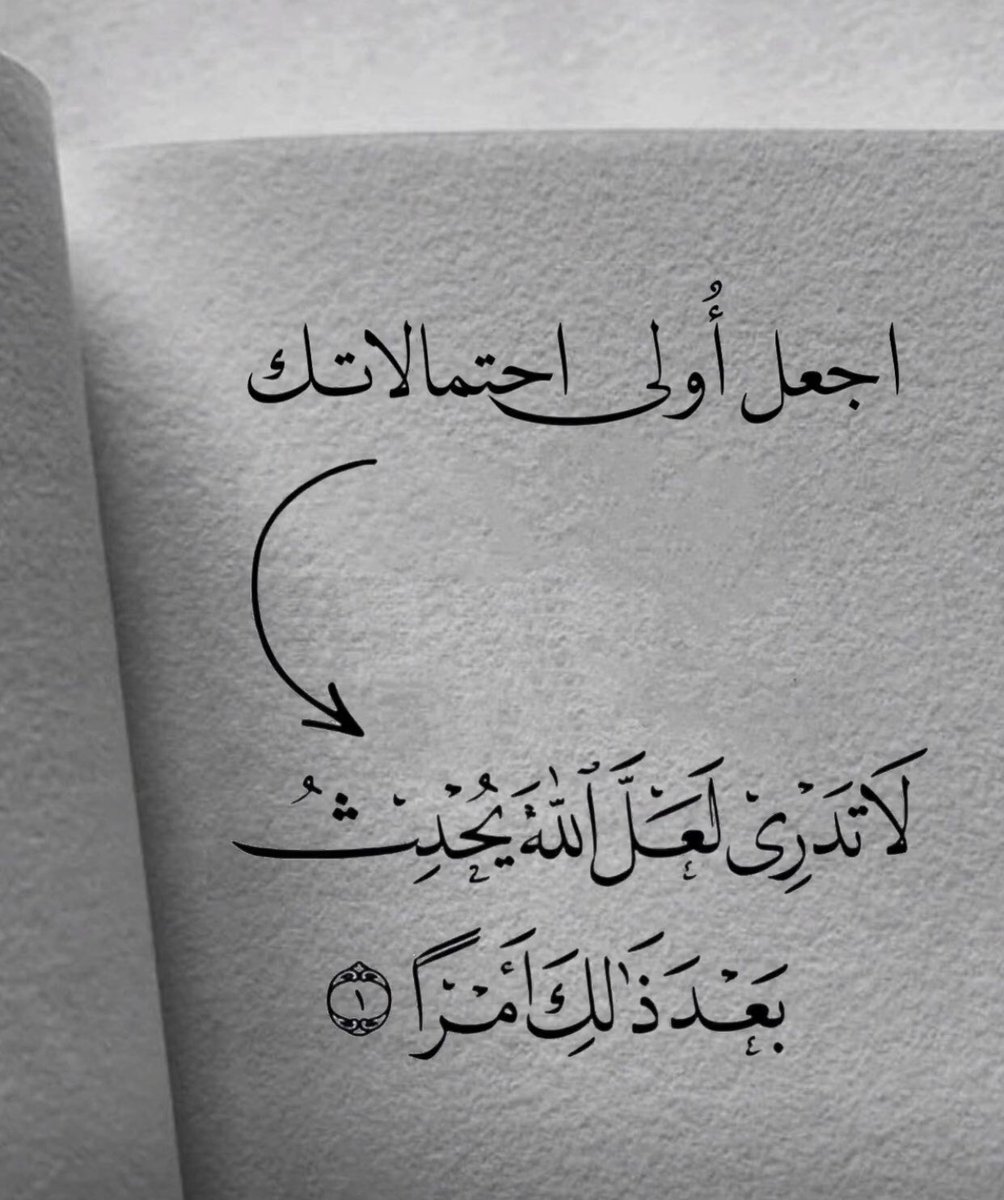 اجعل أُولى احتمالاتك
لَا تَدْرِى لَعَلَّ ٱللَّهَ يُحْدِثُ
بَعْدَ ذَٰلِكَ أَمْرًا ١